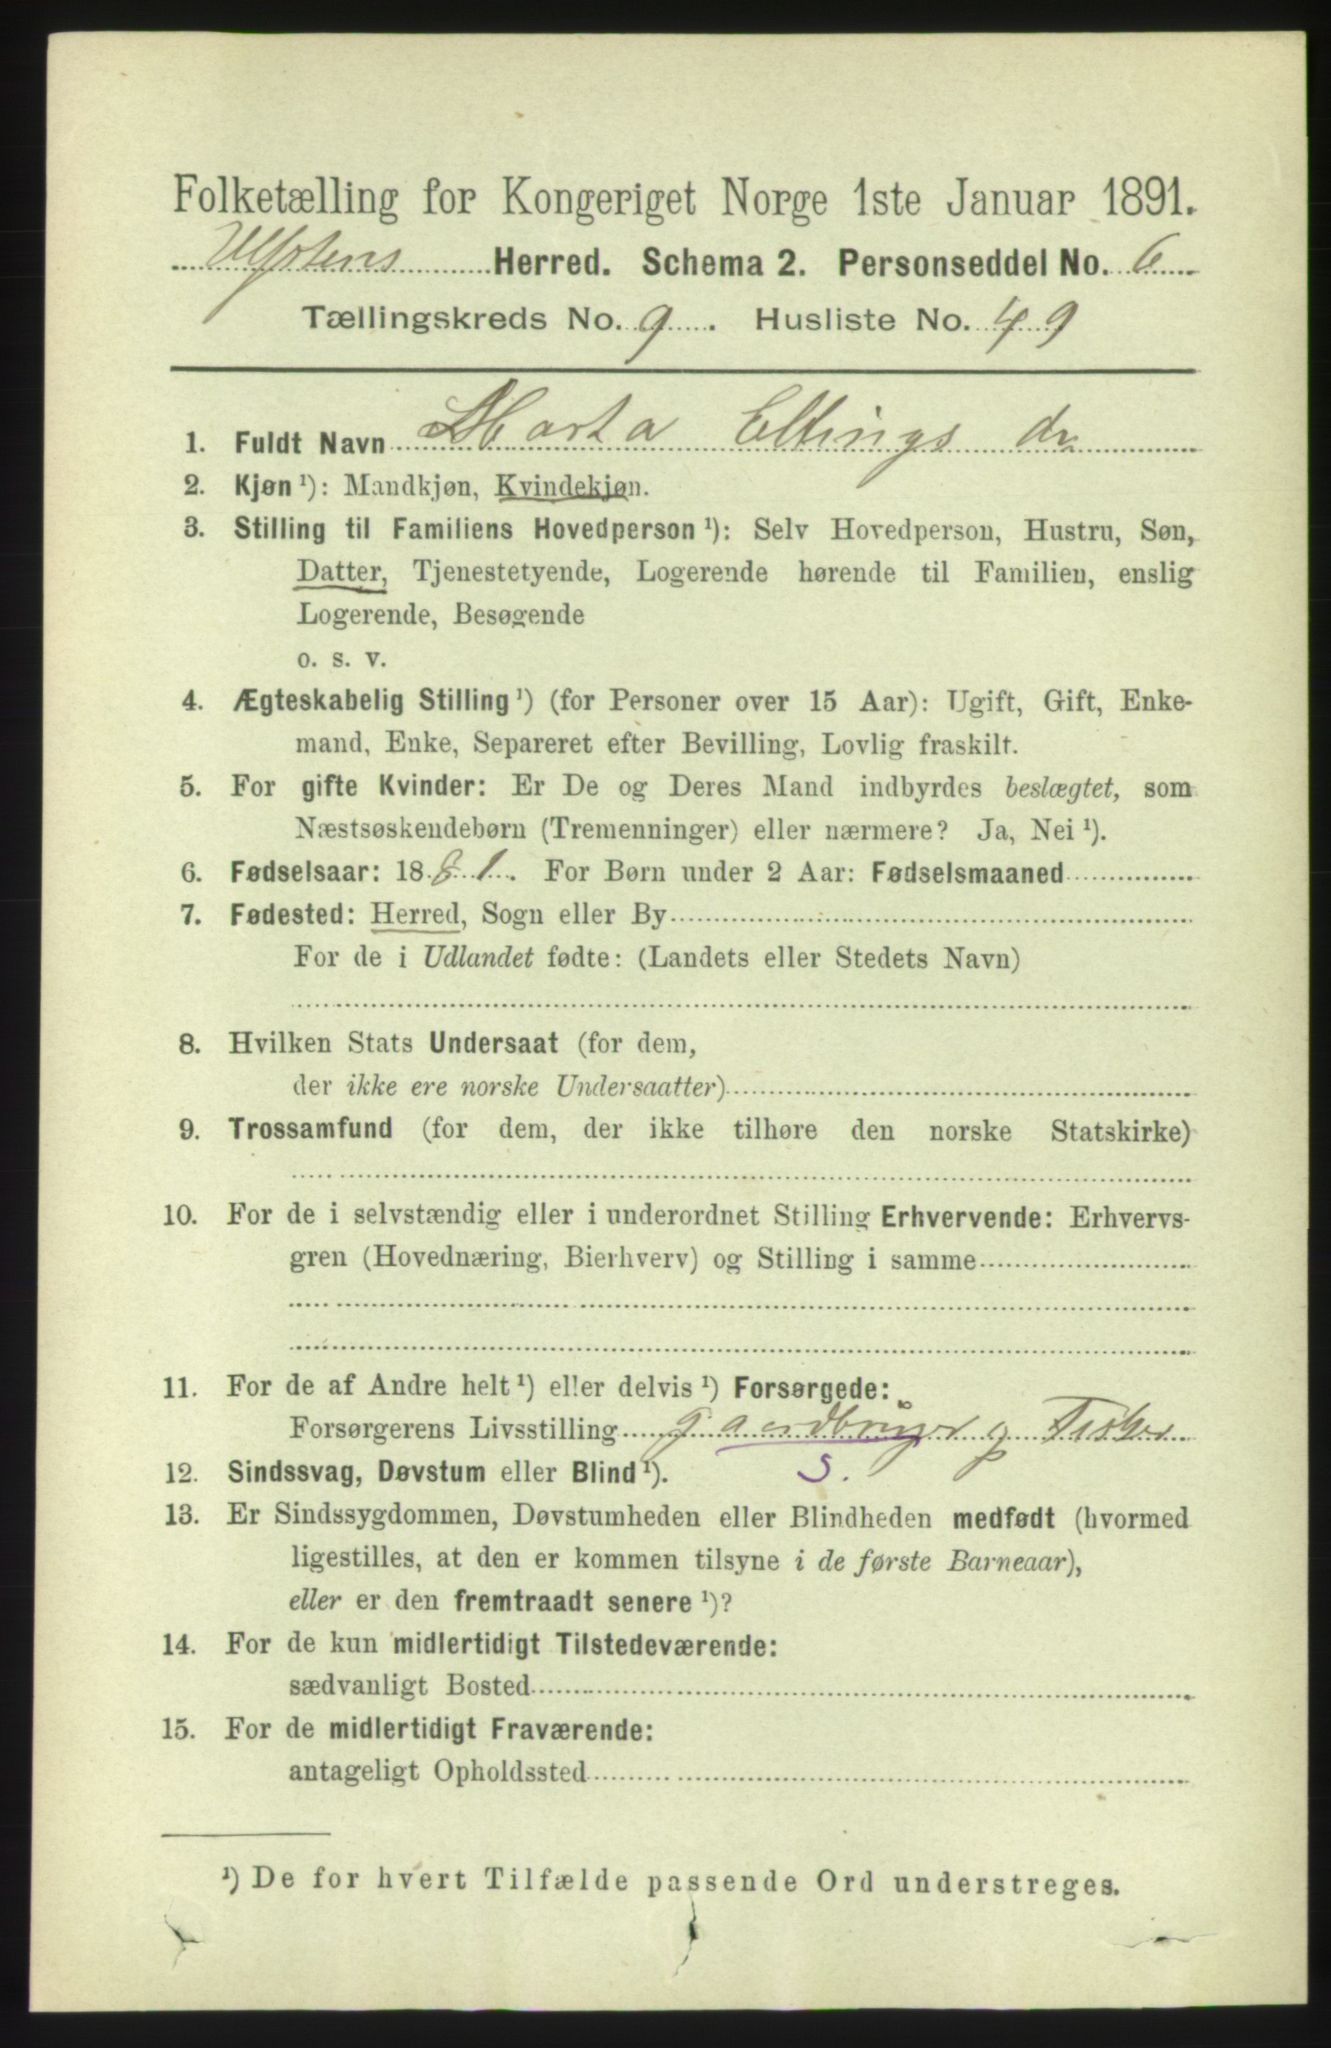 Folketælling for Kongeriget Norge 1ste Januar 1891.
Ulfstens Herred. Schema 2. Personseddel No. 6
Tællingskreds No. 9. Husliste No. 49
1. Fuldt Navn Marta Ellings dr
2. Kjøn ¹): Mandkjøn, Kvindekjøn.
3. Stilling til Familiens Hovedperson ¹): Selv Hovedperson, Hustru, Søn,
Datter, Tjenestetyende, Logerende hørende til Familien, enslig
Logerende, Besøgende
o. s. v.
4. Ægteskabelig Stilling ¹) (for Personer over 15 Aar): Ugift, Gift, Enke-
mand, Enke, Separeret efter Bevilling, Lovlig fraskilt.
5. For gifte Kvinder: Er De og Deres Mand indbyrdes beslægtet, som
Næstsøskendebørn (Tremenninger) eller nærmere? Ja, Nei ¹).
6. Fødselsaar: 1881. For Børn under 2 Aar: Fødselsmaaned
7. Fødested: Herred, Sogn eller By
For de i Udlandet fødte: (Landets eller Stedets Navn)
8. Hvilken Stats Undersaat (for dem,
der ikke ere norske Undersaatter)
9. Trossamfund (for dem, der ikke tilhøre den norske Statskirke)
10. For de i selvstændig eller i underordnet Stilling Erhvervende: Erhvervs-
gren (Hovednæring, Bierhverv) og Stilling i samme
11. For de af Andre helt ¹) eller delvis ¹) Forsørgede:
Forsørgerens Livsstilling gaardbruger og Fisker
12. Sindssvag, Døvstum eller Blind ¹). S.
13. Er Sindssygdommen, Døvstumheden eller Blindheden medfødt (hvormed
ligestilles, at den er kommen tilsyne i de første Barneaar),
eller er den fremtraadt senere ¹)?
14. For de kun midlertidigt Tilstedeværende:
sædvanligt Bosted
15. For de midlertidigt Fraværende:
antageligt Opholdssted
¹) De for hvert Tilfælde passende Ord understreges.